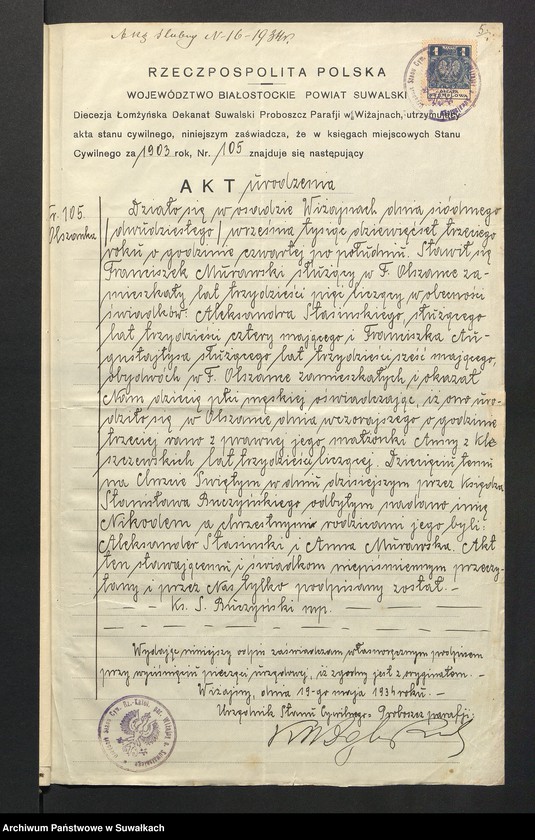 Akt ślubu N-16-1934r.
5
RZECZPOSPOLITA POLSKA
WOJEWÓDZTWO BIAŁOSTOCKIE POWIAT SUWALSKI
Diecezja Łomżyńska Dekanat Suwalski Proboszcz Parafji w Wiżajnach, utrzymujący
akta stanu cywilnego, niniejszym zaświadcza, że w księgach miejscowych Stanu
Cywilnego za 1903 rok, Nr. 105 znajduje się następujący
AKT urodzenia
Nr. 105.
Olszanka
Działo się w osadzie Wiżajnach dnia siódmego
/dwudziestego/ września tysiąc dziewięćset trzeciego
roku o godzinie czwartej po południu. Stawił się
Franciszek Murawski służący w F. Olszance za-
mieszkały lat trzydzieści pięć liczący w obecności
świadków: Aleksandra Stasinskiego, służącego
lat trzydzieści cztery mającego i Franciszka Au-
gustajtysa służącego lat trzydzieści sześć mającego,
obydwóch w F. Olszance zamieszkałych i okazał
Nam dziecię płci męskiej oświadczając, iż ono uro-
dziło się w Olszance dnia wczorajszego o godzinie
trzeciej rano z prawnej jego małżonki Anny z Kle-
szczewskich lat trzydzieści liczącej. Dziecięciu temu
na Chrzcie Świętym w dniu dzisiejszym przez Księdza
Stanisława Buczyńskiego odbytym nadano imię
Nikodem a chrzestnymi rodzicami jego byli:
Aleksander Stasinski i Anna Murawska. Akt
ten stawającemu i świadkom niepiśmiennym przeczy-
tany i przez Nas tylko podpisany został. –
Ks. S. Buczyński mp.
Wydając niniejszy odpis zaświadczam własnoręcznym podpisem
przy wyciśnięciu pieczęci urzędowej, iż zgodny jest z oryginałem. –
Wiżajny, dnia 19-go maja 1934 roku. –
Urzędnik Stanu Cywilnego Proboszcz parafji:
Archiwum Państwowe w Suwałkach